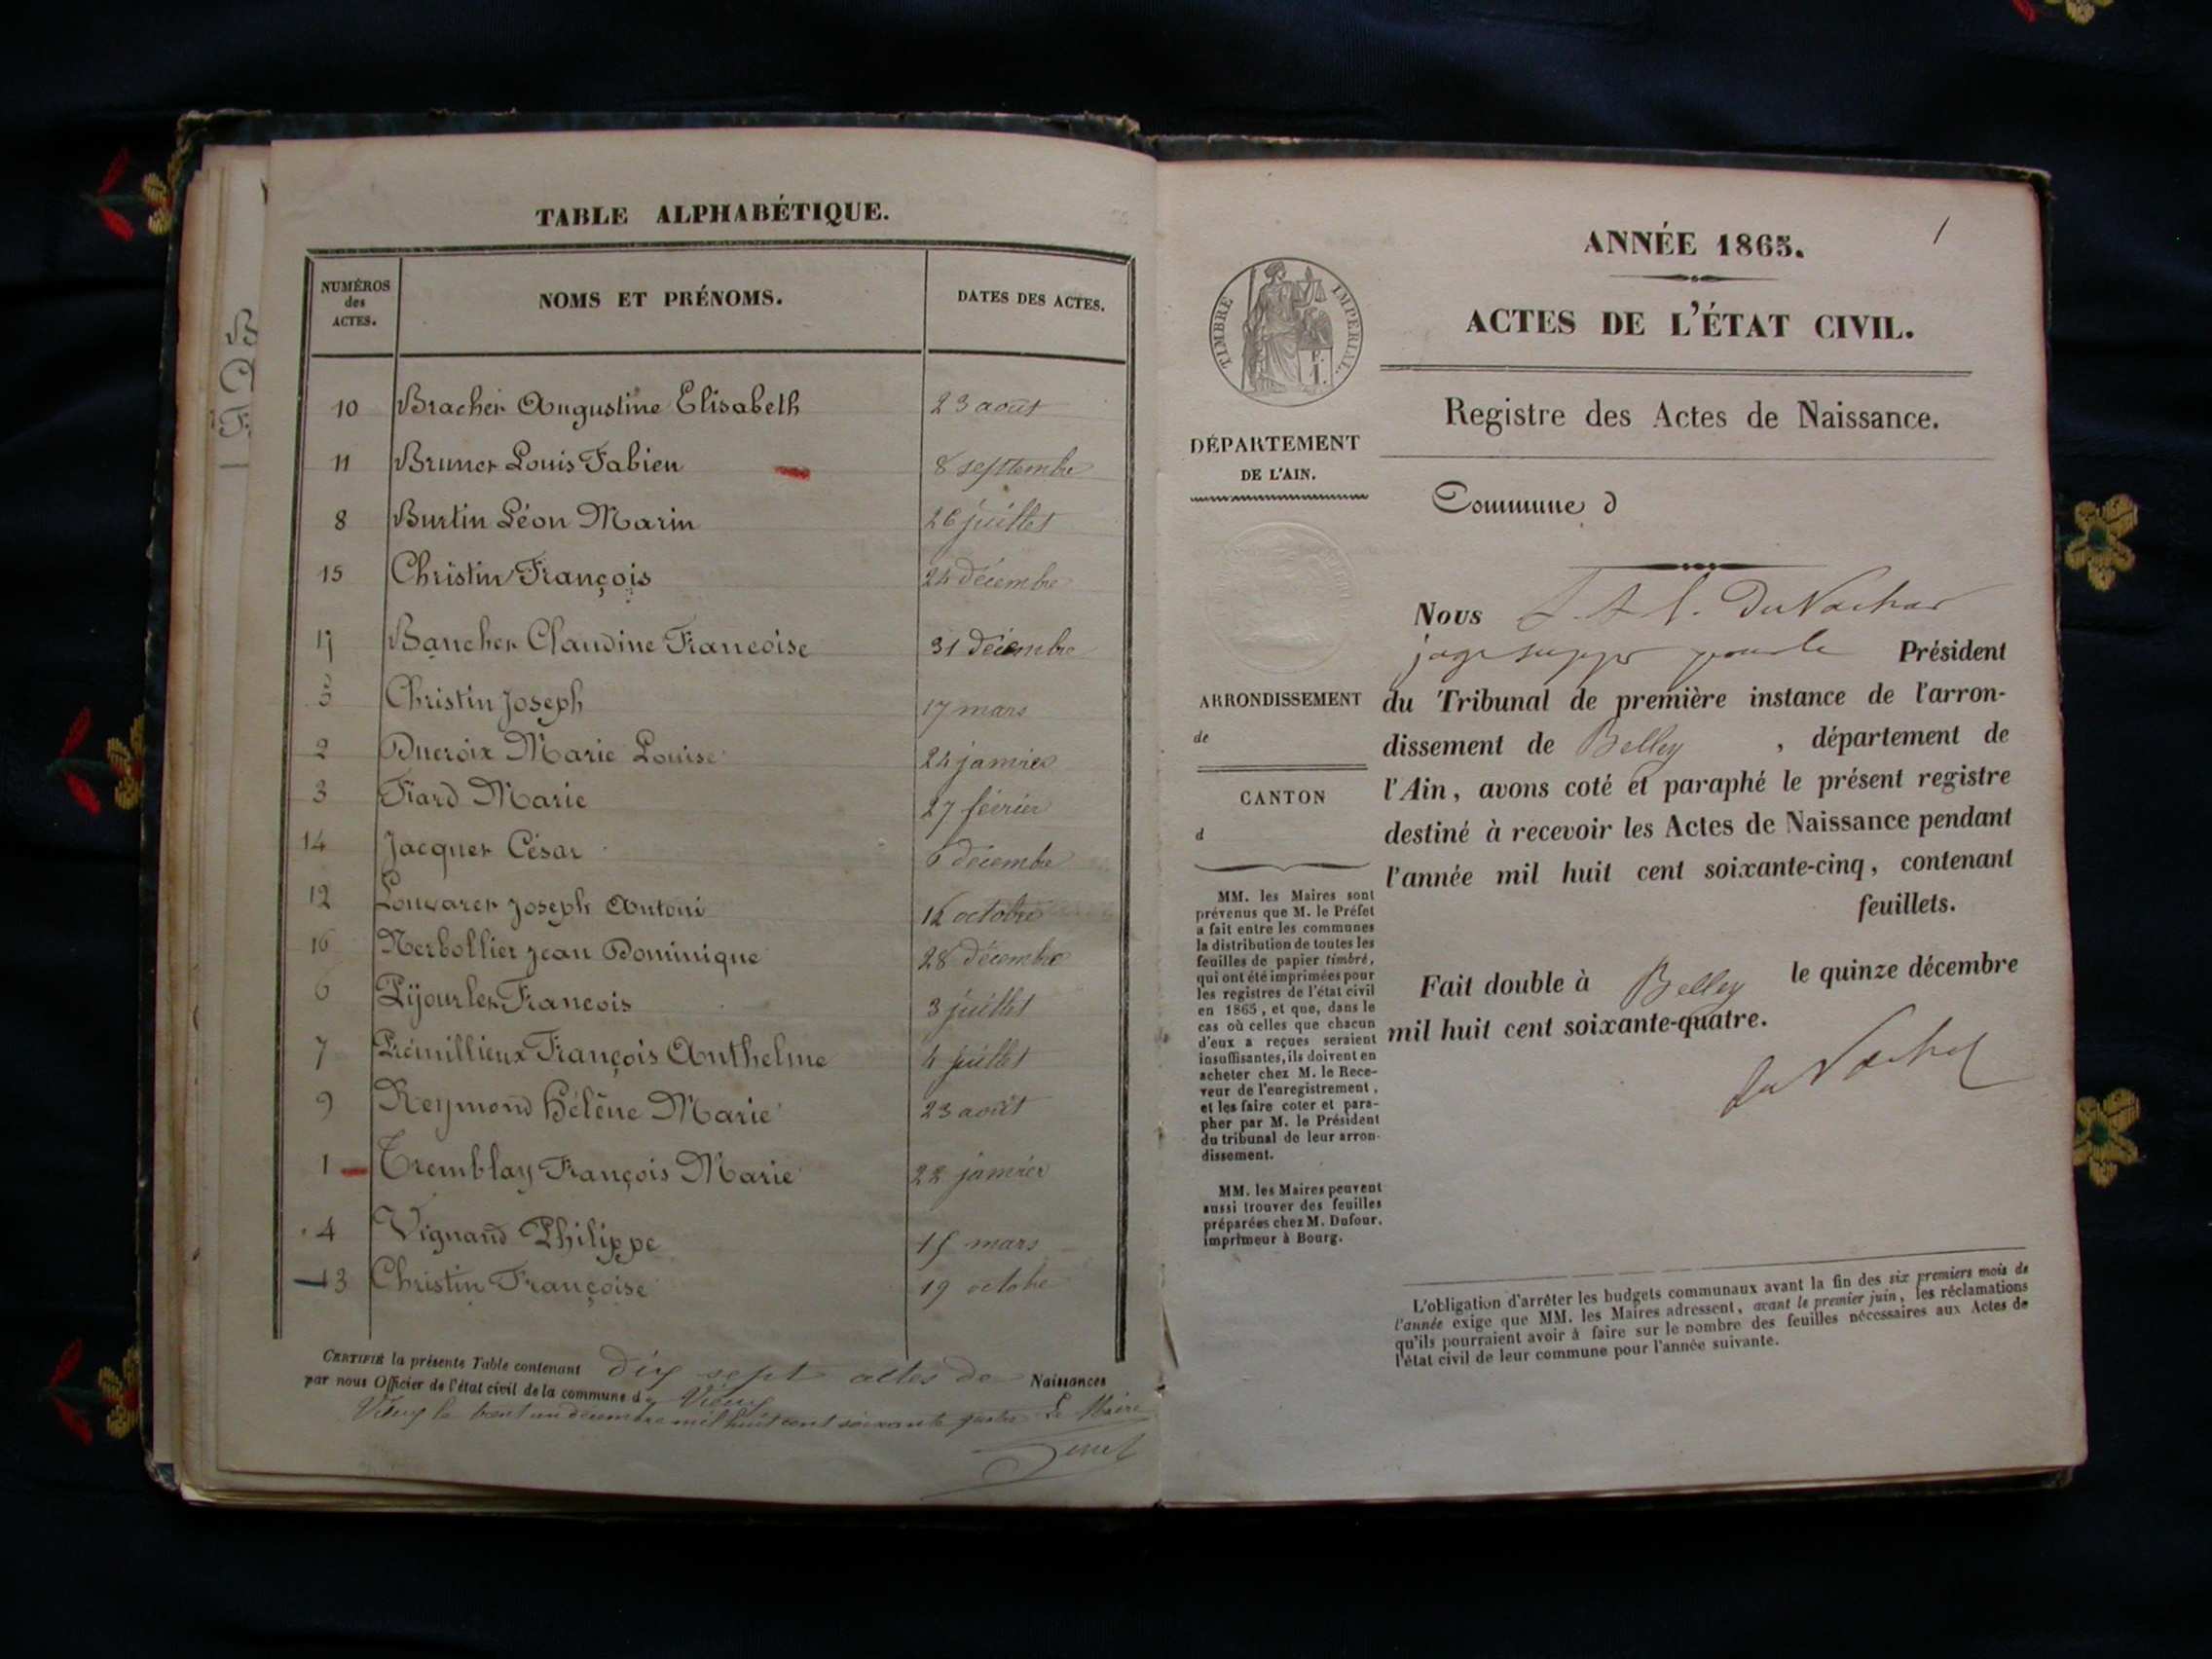 TABLE ALPHABÉTIQUE.
NUMÉROS des ACTES. NOMS ET PRÉNOMS. DATES DES ACTES.
10 Bracher Augustine Elisabeth 23 août
11 Brunet Louis Fabien 8 septembre
8 Burtin Léon Marin 26 juillet
15 Christin François 24 décembre
17 Bancher Claudine Francoise 31 décembre
5 Christin Joseph 17 mars
2 Ducroix Marie Louise 24 janvier
3 Fiard Marie 27 février
14 Jacquet César 6 décembre
12 Joseph Antoni octobre
16 Nerbollier Jean Dominique 28 décembre
6 Francois 3 juillet
7 Prémillieux François Anthelme 4 juillet
9 Reymond Hélène Marie 23 août
1 Tremblay François Marie 22 janvier
4 Vignand Philippe 15 mars
13 Christin Françoise 19 octobre
CERTIFIÉ la présente Table contenant dix sept actes de Naissances
par nous Officier de l'état civil de la commune d Vieu
Vieu le trent un décembre mil huit cent soixante quatre Le Maire
1
ANNÉE 1865.
ACTES DE L'ÉTAT CIVIL.
Registre des Actes de Naissance.
TIMBRE IMPERIAL.
DÉPARTEMENT
DE L'AIN.
Commune d
ARRONDISSEMENT
de
CANTON
d
MM. les Maires sont
prévenus que M. le Préfet
a fait entre les communes
la distribution de toutes les
feuilles de papier timbré,
qui ont été imprimées pour
les registres de l'état civil
en 1865, et que, dans le
cas où celles que chacun
d'eux a reçues seraient
insuffisantes, ils doivent en
acheter chez M. le Rece-
veur de l'enregistrement,
et les faire coter et para-
pher par M. le Président
du tribunal de leur arron-
dissement.
MM. les Maires peuvent
aussi trouver des feuilles
préparées chez M. Dufour,
imprimeur à Bourg.
Nous
Président
du Tribunal de première instance de l'arron-
dissement de Belley , département de
l'Ain, avons coté et paraphé le présent registre
destiné à recevoir les Actes de Naissance pendant
l'année mil huit cent soixante-cinq, contenant
feuillets.
Fait double à Belley le quinze décembre
mil huit cent soixante-quatre.
L'obligation d'arrêter les budgets communaux avant la fin des six premiers mois de
l'année exige que MM. les Maires adressent, avant le premier juin, les réclamations
qu'ils pourraient avoir à faire sur le nombre des feuilles nécessaires aux Actes de
l'état civil de leur commune pour l'année suivante.